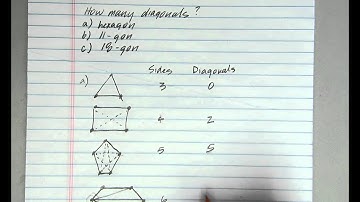 How many diagonals?
a) hexagon
b) 11-gon
c) 18-gon
Sides Diagonals
a) 3 0
4 2
5 5
6